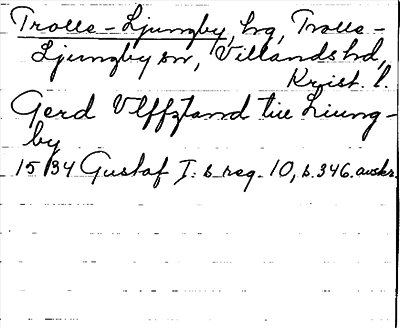 Trolle-Ljungby, hg, Trolle-
Ljungby sn, Villands hd,
Krist. l.
Gerd Vlffztand till Liung-
by
1534 Gustaf I:s reg. 10, s. 346. avskr.